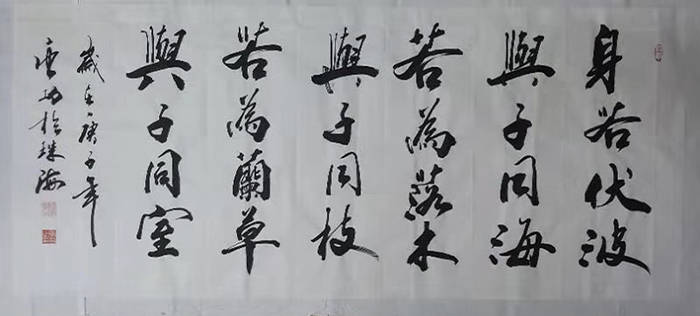 身若伏波
與子同海
若為落木
與子同枝
若為蘭草
與子同室
歲在庚子年
於珠海